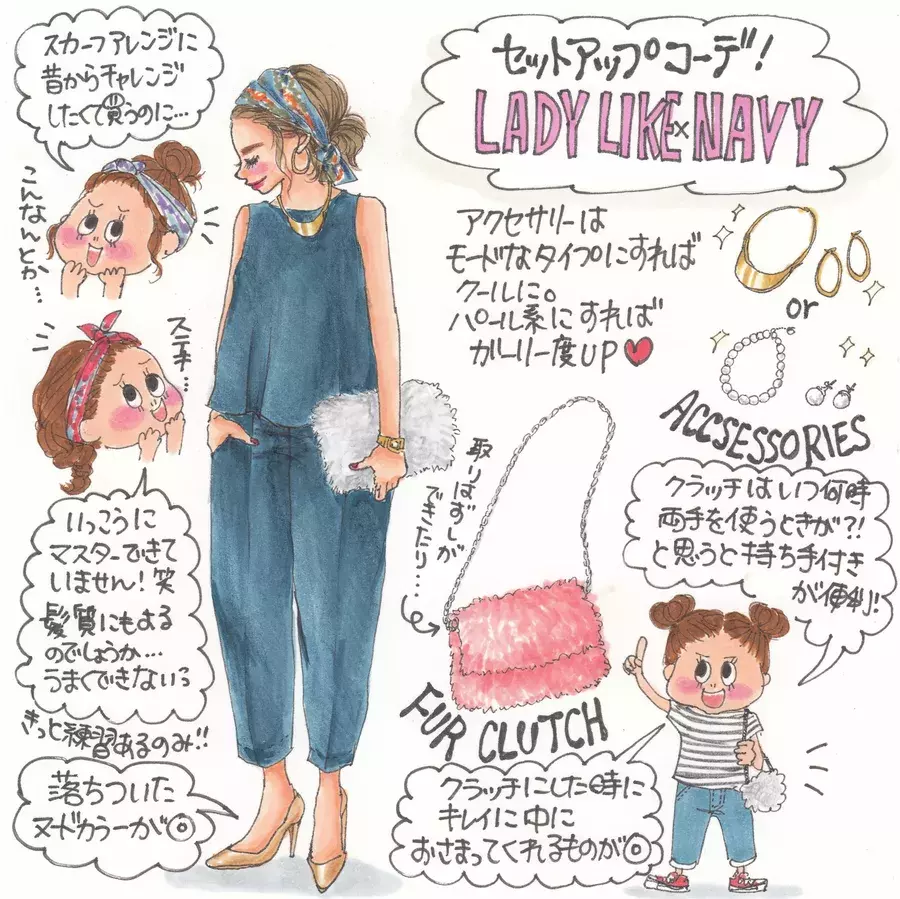 スカーフアレンジに
昔からチャレンジ
したくて買うのに…
こんなんとか…
ステキ…
いっこうに
マスターできて
いません！笑
髪質にもよる
のでしょうか…
うまくできないっ
きっと練習あるのみ!!
落ちついた
ヌードカラーが◎
セットアップコーデ！
LADY LIKE×NAVY
アクセサリーは
モードなタイプにすれば
クールに。
パール系にすれば
ガーリー度UP♥
or
ACCSESSORIES
取りはずしが
できたり…
FUR CLUTCH
クラッチはいつ何時
両手を使うときが?!
と思うと持ち手付き
が便利！
クラッチにした時に
キレイに中に
おさまってくれるものが◎